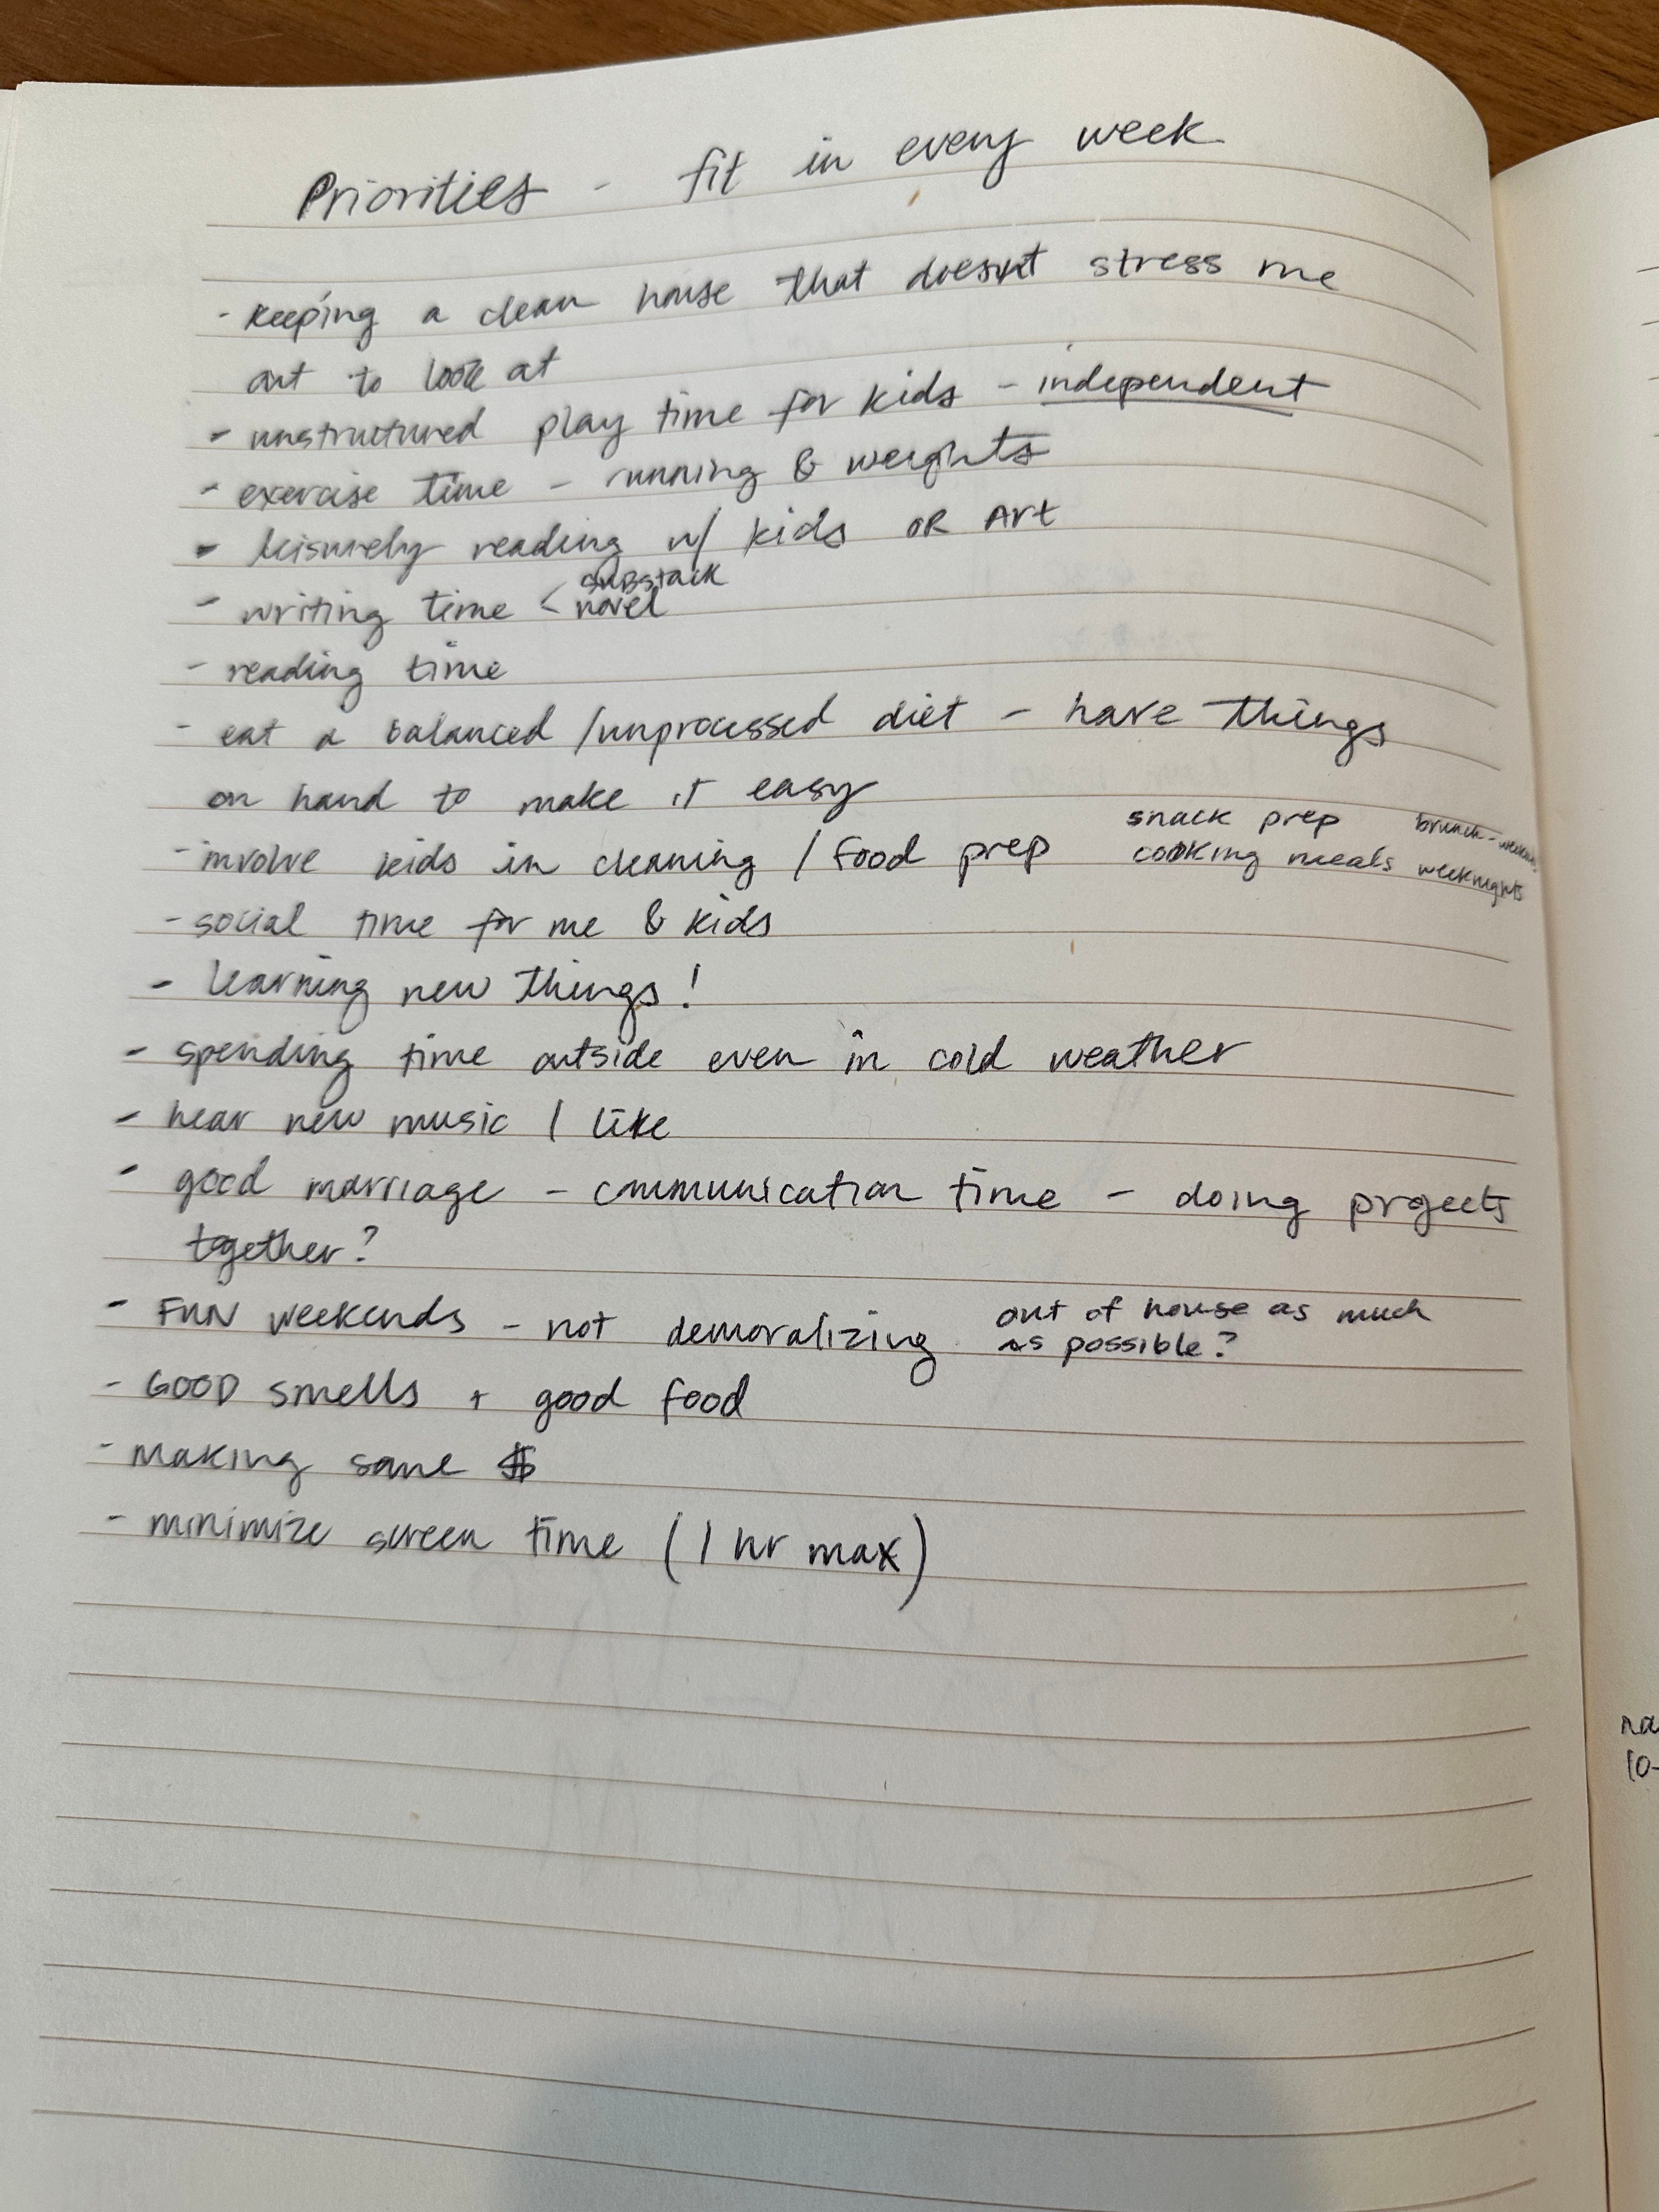 Priorities - fit in every week
- keeping a clean house that doesn't stress me
out to look at
- unstructured play time for kids - independent
- exercise time - running & weights
- leisurely reading w/ kids OR Art
- writing time < substack
novel
- reading time
- eat a balanced/unprocessed diet - have things
on hand to make it easy
- involve kids in cleaning / food prep snack prep brunch -
cooking meals weeknights
- social time for me & kids
- learning new things!
- spending time outside even in cold weather
- hear new music I like
- good marriage - communication time - doing projects
together?
- FUN weekends - not demoralizing out of house as much
as possible?
- GOOD smells + good food
- making some $
- minimize screen time (1 hr max)